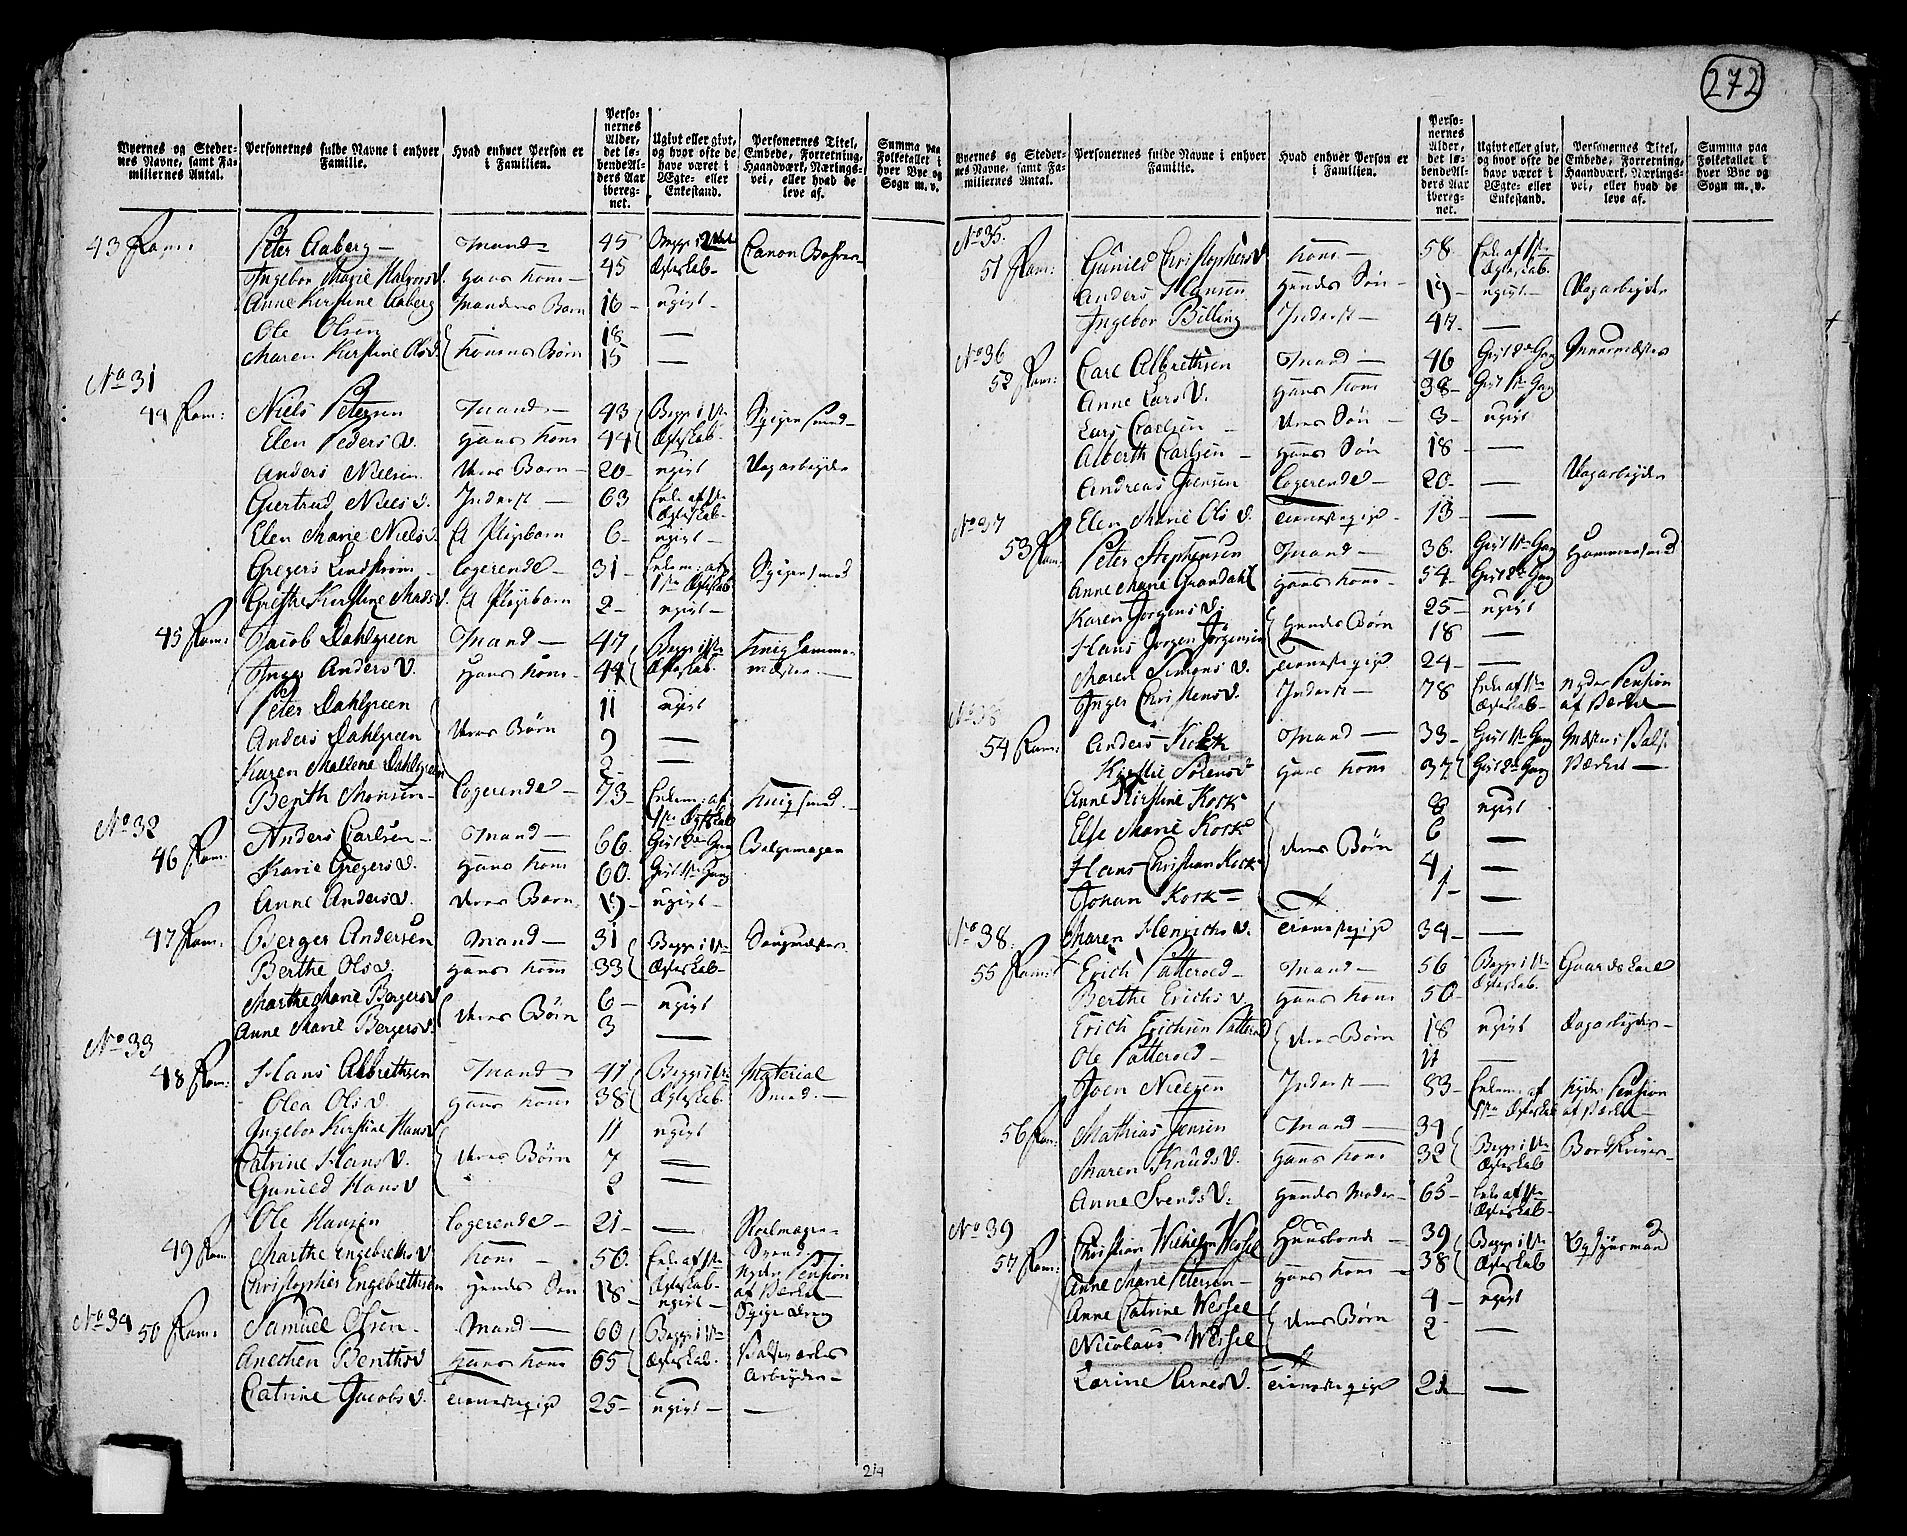 272
Byernes og Stedernes Navne, samt Familiernes Antal. | Personernes fulde Navne i enhver Familie. | Hvad enhver Person er i Familien. | Personernes Alder, det løbende Alders Aar iberegnet. | Ugivt eller givt, og hvor ofte de have været i Ægte- eller Enkestand. | Personernes Titel, Embede, Forretning, Haandværk, Næringsvei, eller hvad de leve af. | Summa paa Folketallet i hver Bye og Sogn m. v.
43 Fam: Peter Aaberg – Mand 45 Begge i 2det Canon Bohrer
Ingebor Marie Halvors D. Hans Kone 45 Ægteskab
Anne Kirstine Aaberg Mandens Barn 16 – ugivt –
Ole Olsen 18 —
Maren Kirstine Ols D. Konens Børn 15 —
No 31
44 Fam: Niels Petersen Mand – 43 Begge i 1te
Elen Peders D. Hans Kone 44 Ægteskab
Anders Nielsen Deres Barn – 20 – ugivt Dagarbeyder
Giertrud Niels D. Inderst – 63 Enke af 1te Ægteskab
Elen Marie Niels D. Et Pleyebarn 6 – ugivt –
Gregers Lindstrøm Logerende – 31 – Enkem: af 1te Ægteskab
Grethe Kirstine Mads D. Et Pleyebarn 2 – ugivt –
45 Fam: Jacob Dahlgreen Mand — 47 Begge i 1te
Inger Anders D. Hans Kone 44 Ægteskab
Peter Dahlgreen 11 ugivt
Anders Dahlgreen Deres Børn 9 —
Karen Mallene Dahlgreen 2 —
Benth Monsen Logerende – 73 – Enkem: af 1te Ægteskab
No 32
46 Fam: Anders Carlsen – Mand — 66 Givt 2den Gang Bælgemager
Marie Gregers D. Hans Kone 60 Givt 1te Gang
Anne Anders D. Deres Barn 19 – ugivt –
47 Fam: Berger Andersen Mand — 31 Begge i 1te
Berthe Ols D. Hans Kone 33 Ægteskab
Marthe Marie Bergers D. 6 – ugivt
Anne Marie Bergers D. Deres Børn 3 —
No 33
48 Fam: Hans Albrethsen Mand 41 Begge i 1te Material
Olea Ols D. Hans Kone 38 Ægteskab Smed
Ingebor Kirstine Hans D 11 ugivt
Catrine Hans D. Deres Børn 7 —
Gunild Hans D 2 —
Ole Hansen Logerende – 21 – —
49 Fam: Marthe Engebreths D Kone – 50 Enke af 1te Ægteskab nyder Pension af Værket
Christopher Engebrethsen Hendes Søn 18 – ugivt –
No 34
50 Fam: Samuel Olsen Mand – 60 Begge i 1te
Anechen Benths D Hans Kone 65 Ægteskab Arbeyder
Catrine Jacobs D. Tienestepige 25 – ugivt – —
214
Byernes og Stedernes Navne, samt Familiernes Antal. | Personernes fulde Navne i enhver Familie. | Hvad enhver Person er i Familien. | Personernes Alder, det løbende Alders Aar iberegnet. | Ugivt eller givt, og hvor ofte de have været i Ægte- eller Enkestand. | Personernes Titel, Embede, Forretning, Haandværk, Næringsvei, eller hvad de leve af. | Summa paa Folketallet i hver Bye og Sogn m. v.
No 35
51 Fam: Gunild Christophers D Kone – 58 Enke af 1te Ægteskab
Anders Hansen Hendes Søn – 19 – ugivt – Dagarbeyder
Ingebor Billing Inderst – 47 – —
No 36
52 Fam: Carl Albrethsen Mand — 46 Givt 2den Gang Muurmester
Anne Lars D. Hans Kone 38 – Givt 1te Gang
Lars Carlsen Deres Søn – 3 – ugivt
Alberth Carlsen – Hans Søn 18 – —
Andreas Joensen Logerende – 20 – — Dagarbeyder
Elen Marie Ols D. Tienestepige 13 – —
No 37
53 Fam: Peter Stephensen Mand – 36 Givt 1te Gang Hammersmed
Anne Marie Grandahl Hans Kone – 54 – Givt 2den Gang
Karen Jørgens D. 25 – ugivt
Hans Jørgen Jørgensen Hendes Børn 18 —
Maren Simons D. Tienestepige 24 – —
Inger Christens D. Inderst – 78 Enke af 1te Ægteskab nyder Pension af Værket
No 38
54 Fam: Anders Kock Mand — 33 – Givt 1te Gang
Kirstie Sørens D Hans Kone 37 Givt 2den Gang
Anne Kirstine Kock 8 ugivt
Else Marie Kock 6 —
Hans Christian Kock Deres Børn 4 —
Johan Kock – 1 – —
Maren Henrichs D. Tienestepige 34 – —
No 38
55 Fam: Erich Patteroed – Mand – 56 Begge i 1te Gaardskarl
Berthe Erichs D. Hans Kone 50 – Ægteskab
Erich Erichsen Patteroed Deres Børn 18 ugivt Dagarbeyder –
Ole Patteroed – 11 —
Joen Nielsen Inderst – 83 – Enkem: af 1te Ægteskab nyder Pension af Værket
56 Fam: Mathias Jensen Mand — 34 Begge i 1te
Maren Knuds D. Hans Kone 32 Ægteskab
Anne Svends D. Hendes Moder – 65 – Enke af 1te Ægteskab
No 39
57 Fam: Christian Wilhelm Wessel Huusbonde – 39 Begge i 1te
Anne Marie Petersen – Hans Kone – 38 Ægteskab
Anne Catrine Wessel 4 – ugivt
Nicolaus Wessel Deres Børn 2 – —
Karine Arnes D. Tienestepige 21 —